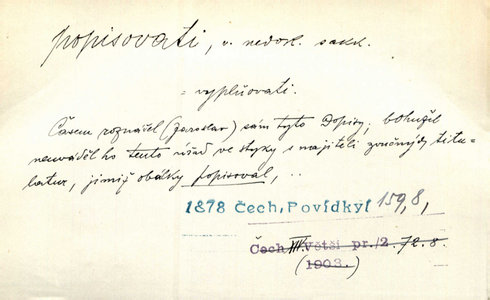 popisovati, v. nedok. sakk.
= vyplňovati.
Časem roznášel (Jaroslav) sám tyto Dopisy; bohužel
neuváděl ho tento úřad ve styky s majiteli zvučných titu-
latur, jimiž obálky popisoval, ..
1878 Čech, Povídky I 159, 8,
Čech III. Větší pr. /2. 72. 8.
(1903.)